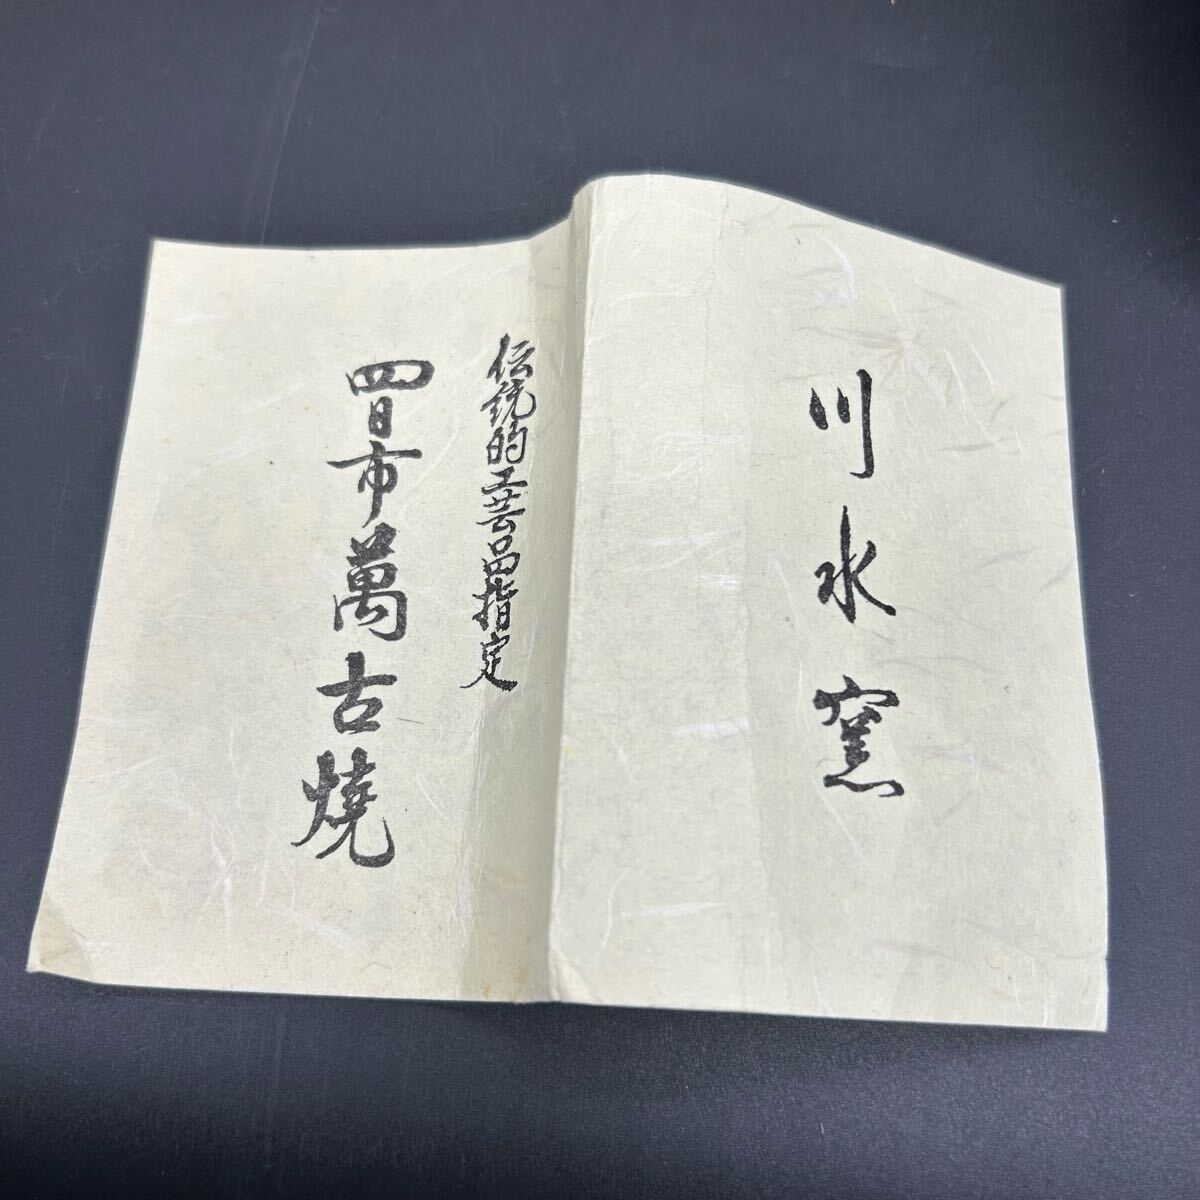 川水窯
伝統的工芸品指定
四日市萬古燒